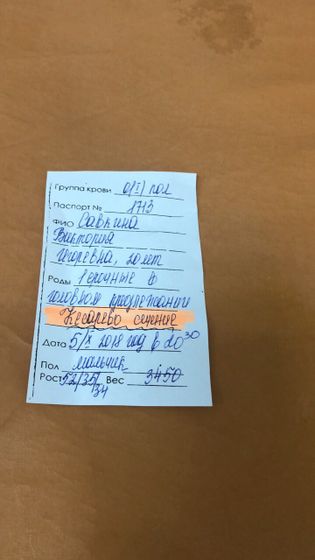 Группа крови 0(I) пол
Паспорт № 1713
ФИО Савкина
Виктория
Игоревна, 20 лет
Роды 1 срочные в
головном предлежании
Кесарево сечение
Дата 5/X 2018 год в 20 30
Пол мальчик
Рост 52/35/34 Вес 3450